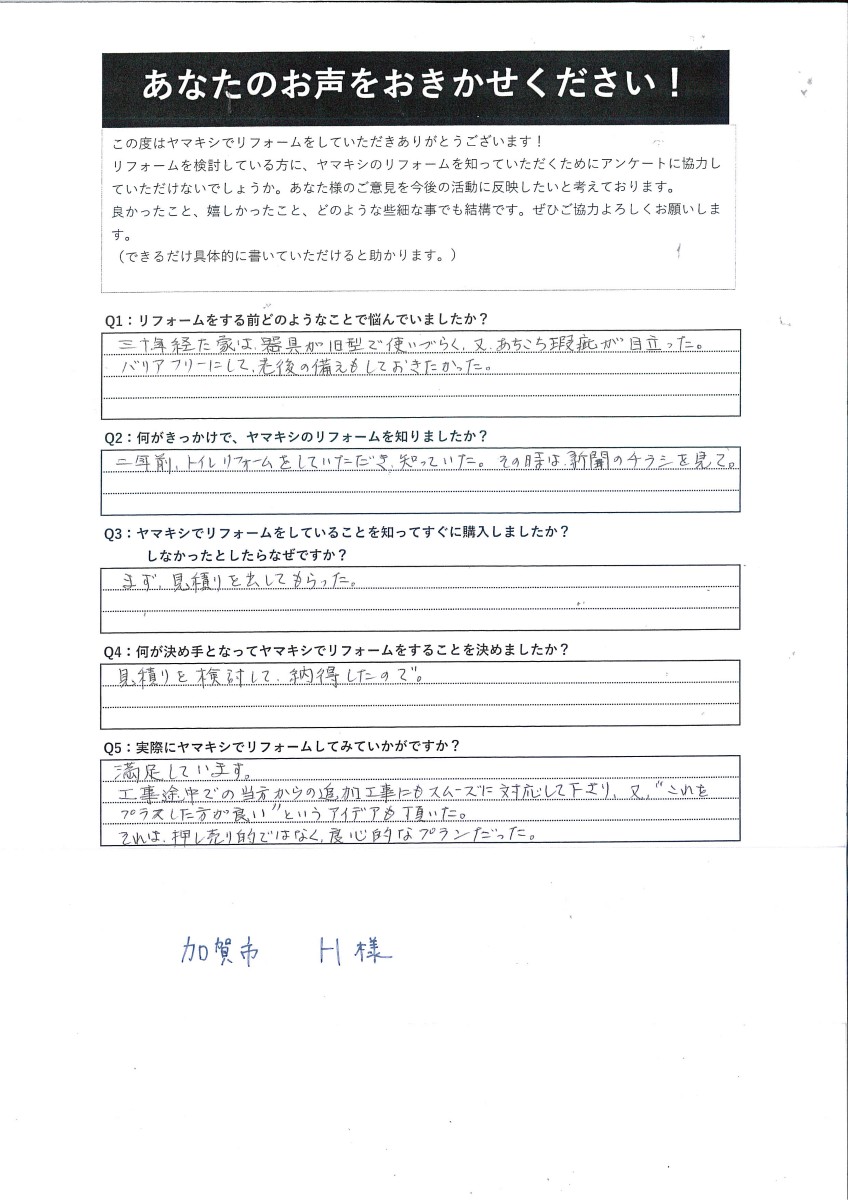 あなたのお声をおきかせください！
この度はヤマキシでリフォームをしていただきありがとうございます！
リフォームを検討している方に、ヤマキシのリフォームを知っていただくためにアンケートに協力し
ていただけないでしょうか。あなた様のご意見を今後の活動に反映したいと考えております。
良かったこと、嬉しかったこと、どのような些細な事でも結構です。ぜひご協力よろしくお願いしま
す。
（できるだけ具体的に書いていただけると助かります。）
Q1：リフォームをする前どのようなことで悩んでいましたか？
三十年経た家は、器具が旧型で使いづらく、又、あちこち瑕疵が目立った。
バリアフリーにして、老後の備えもしておきたかった。
Q2：何がきっかけで、ヤマキシのリフォームを知りましたか？
二年前、トイレリフォームをしていただき、知っていた。その時は、新聞のチラシを見て。
Q3：ヤマキシでリフォームをしていることを知ってすぐに購入しましたか？
しなかったとしたらなぜですか？
まず、見積りを出してもらった。
Q4：何が決め手となってヤマキシでリフォームをすることを決めましたか？
見積りを検討して、納得したので。
Q5：実際にヤマキシでリフォームしてみていかがですか？
満足しています。
工事途中での当方からの追加工事にもスムーズに対応して下さり、又、“これを
プラスした方が良い”というアイデアも頂いた。
それは、押し売り的ではなく、良心的なプランだった。
加賀市 H様